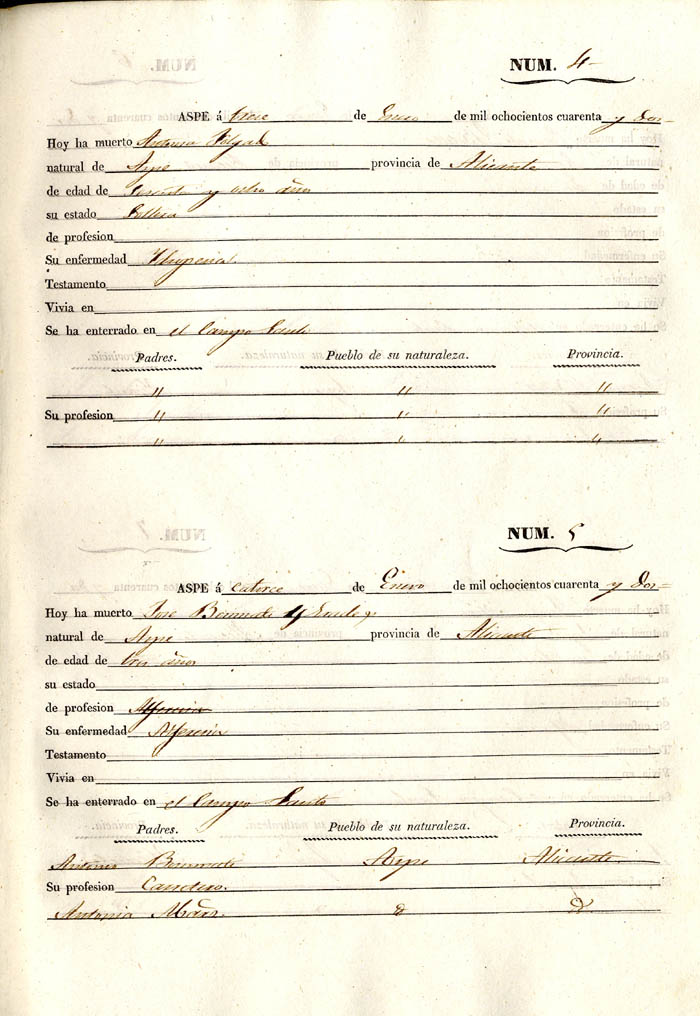 NUM. 4
ASPE á trece de Enero de mil ochocientos cuarenta y dos
Hoy ha muerto Antonia
natural de Aspe provincia de Alicante
de edad de sesenta y ocho años
su estado Soltera
de profesion
Su enfermedad
Testamento
Vivia en
Se ha enterrado en el Campo Santo
Padres. Pueblo de su naturaleza. Provincia.
" " "
Su profesion " " "
" " "
NUM. 5
ASPE á catorce de Enero de mil ochocientos cuarenta y dos
Hoy ha muerto Jose
natural de Aspe provincia de Alicante
de edad de tres años
su estado
de profesion
Su enfermedad
Testamento
Vivia en
Se ha enterrado en el Campo Santo
Padres. Pueblo de su naturaleza. Provincia.
Antonio Aspe Alicante
Su profesion Carretero.
Antonia